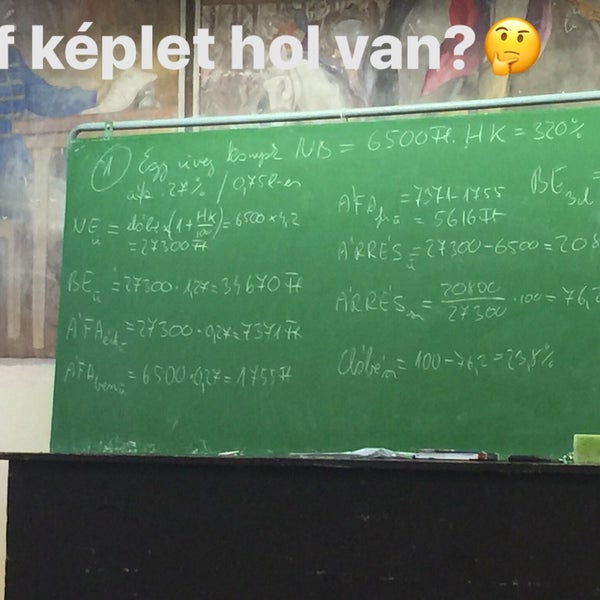 f képlet hol van?🤔
1 Egy üveg NB = 6500 Ft. HK = 320%
áfa 27% / 0,75 l-es
NEü = (1+HK/100) = 6500 × 4,2
= 27300 Ft
BEü = 27300 · 1,27 = 34670 Ft
ÁFA = 27300 · 0,27 = 7371 Ft
ÁFA = 6500 · 0,27 = 1755 Ft
ÁFA = 7371 - 1755
= 5616 Ft
ÁRRÉSü = 27300 - 6500 = 208
ÁRRÉS = 20800/27300 · 100 = 76,2
= 100 - 76,2 = 23,8%
BE =